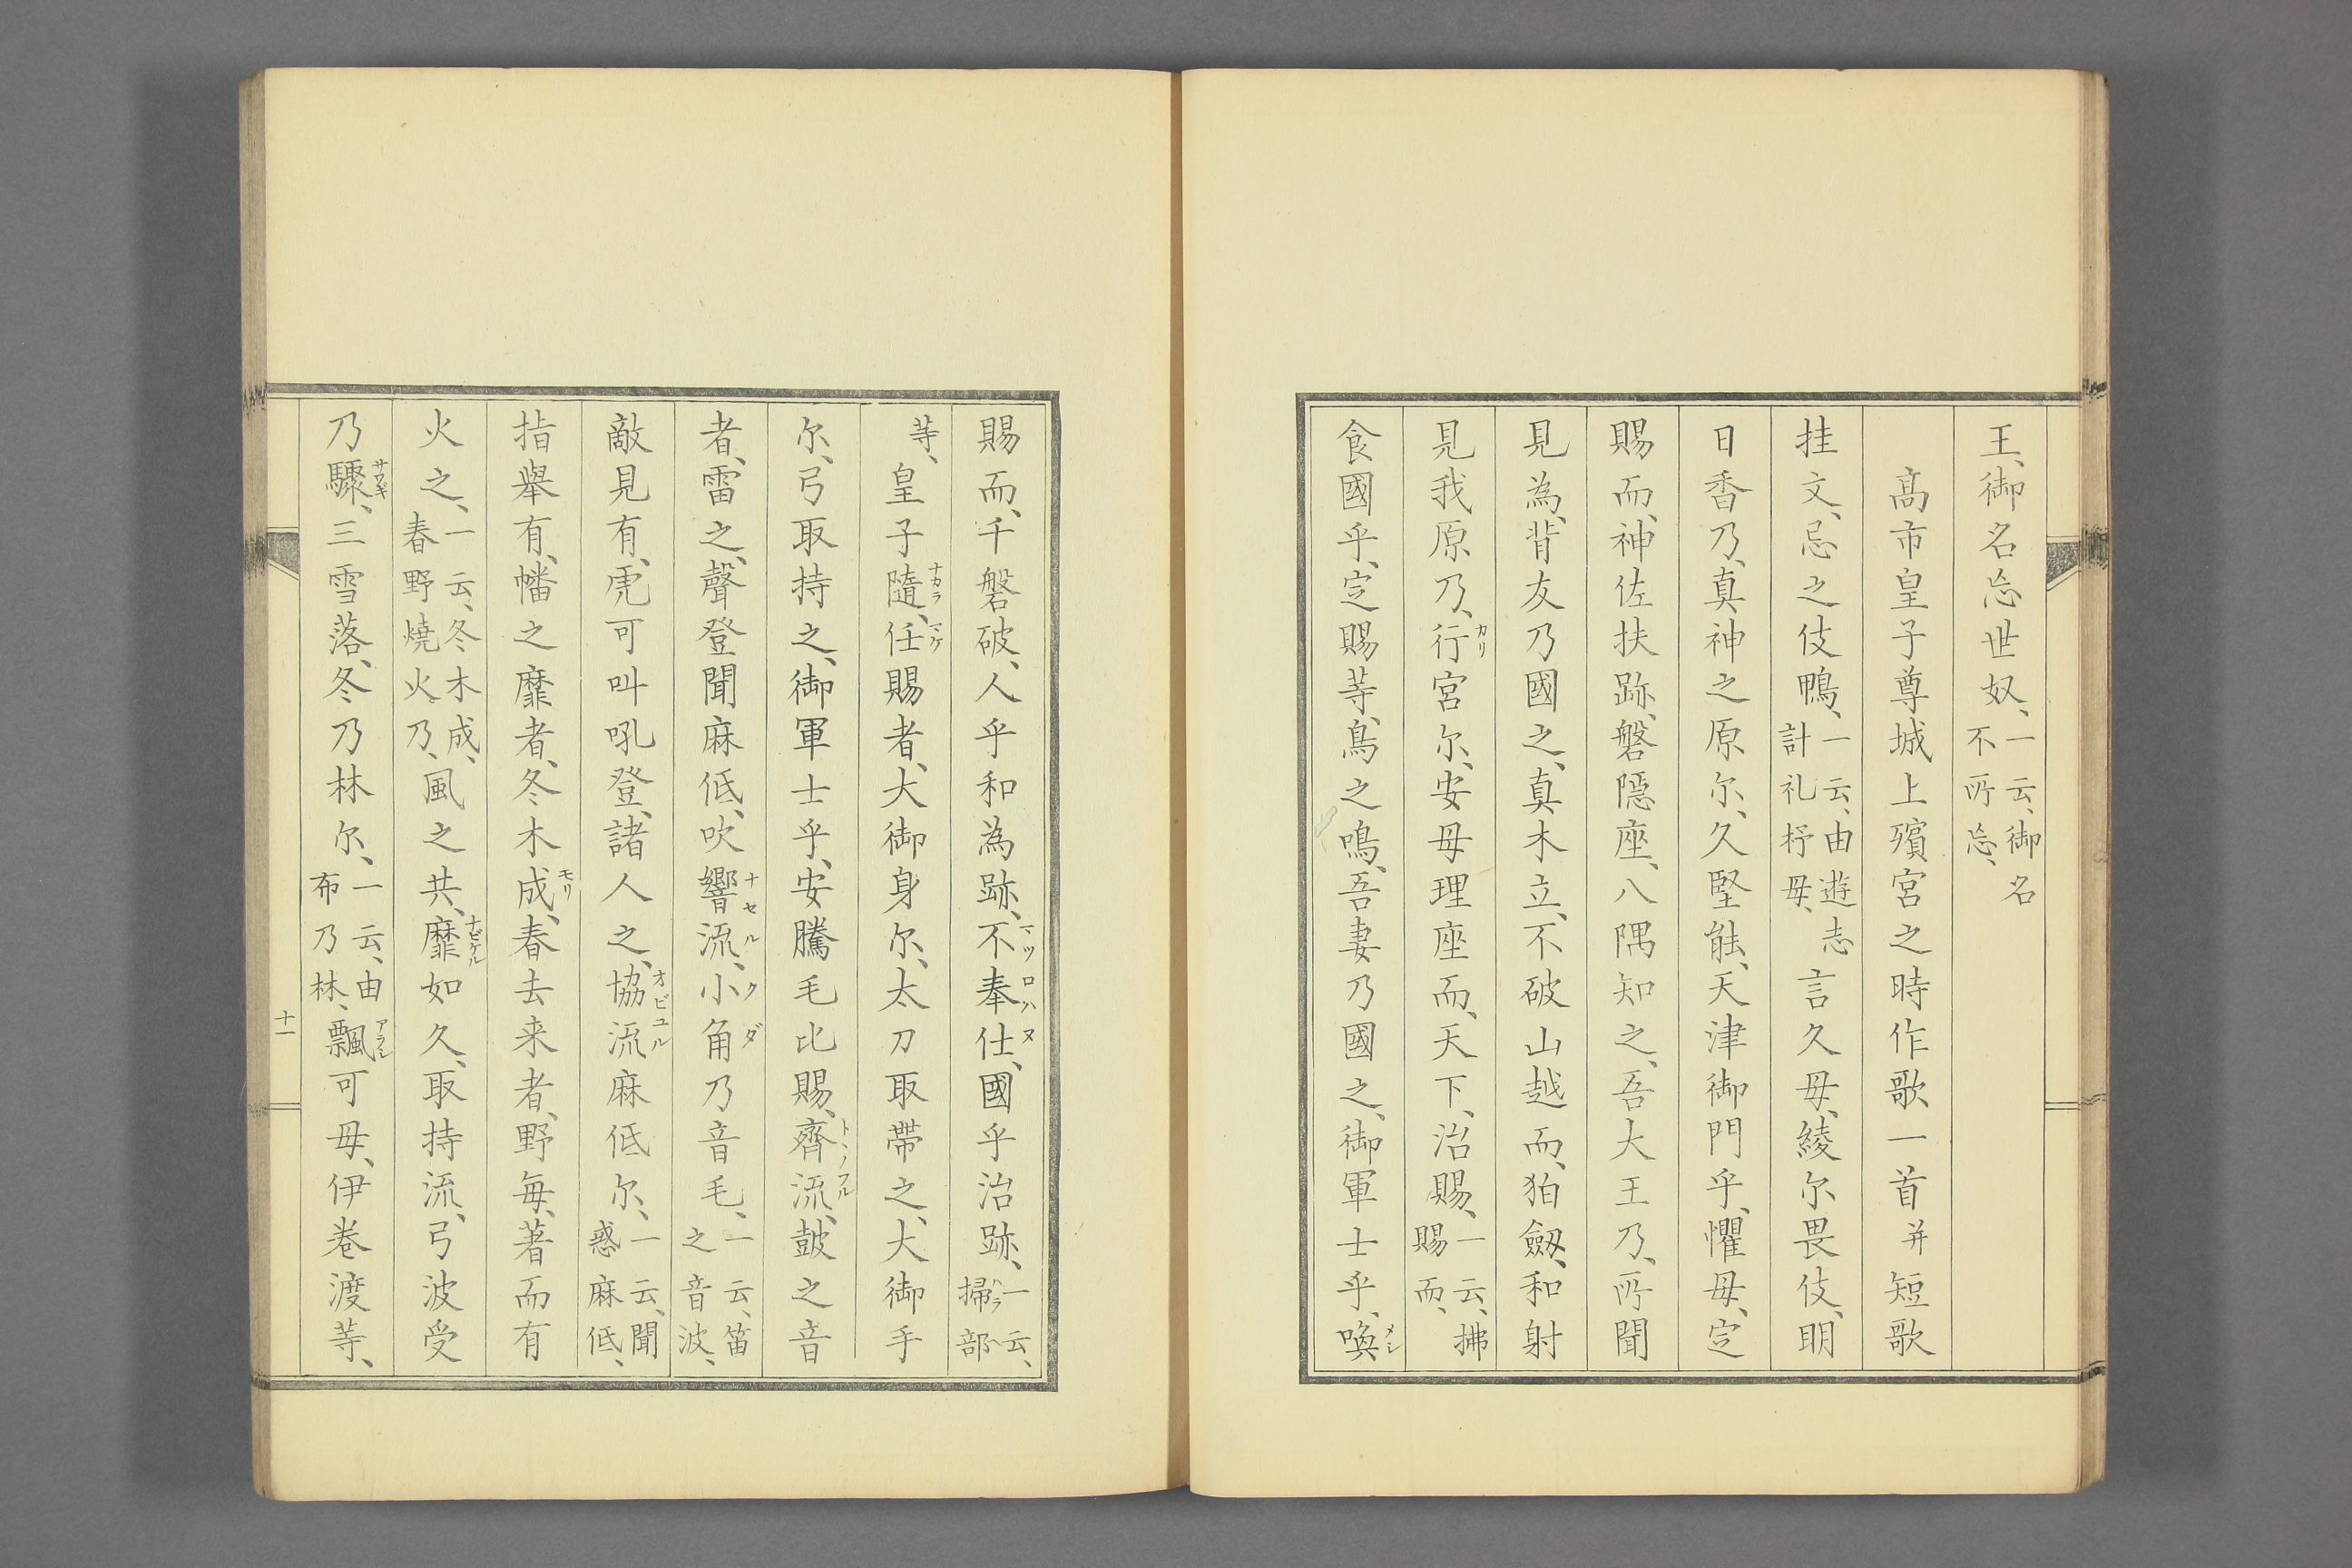 王、御名忘世奴、一云、御名不所忘、
高市皇子尊城上殯宮之時作歌一首并短歌
挂文、忌之伎鴨、一云、由遊志計礼抒母、言久母、綾尓畏伎、明
日香乃、真神之原尓、久堅能、天津御門乎、懼母、定
賜而、神佐扶跡、磐隠座、八隅知之、吾大王乃、所聞
見為、背友乃國之、真木立、不破山越而、狛劔、和射
見我原乃、行カリ宮尓、安母理座而、天下、治賜、一云、拂賜而、
食國乎、定賜等、鳥之鳴、吾妻乃國之、御軍士乎、喚メシ
賜而、千磐破、人乎和為跡、不奉仕マツロハヌ、國乎治跡、一云、掃部ハラヘ
等、皇子隨ナカラ、任マケ賜者、大御身尓、太刀取帶之、大御手
尓、弓取持之、御軍士乎、安騰毛比賜、齊流トヽノフル、鼓之音
者、雷之、聲登聞麻低、吹響流ナセル、小角クダ乃音毛、一云、笛之音波、
敵見有、虎可叫吼登、諸人之、協流オビユル麻低尓、一云、聞惑麻低、
指舉有、幡之靡者、冬木成モリ、春去来者、野毎、著而有
火之、一云、冬木成、春野燒火乃、風之共、靡ナビケル如久、取持流、弓波受
乃驟サワギ、三雪落、冬乃林尓、一云、由布乃林、飄アラシ可母、伊巻渡等、
十一